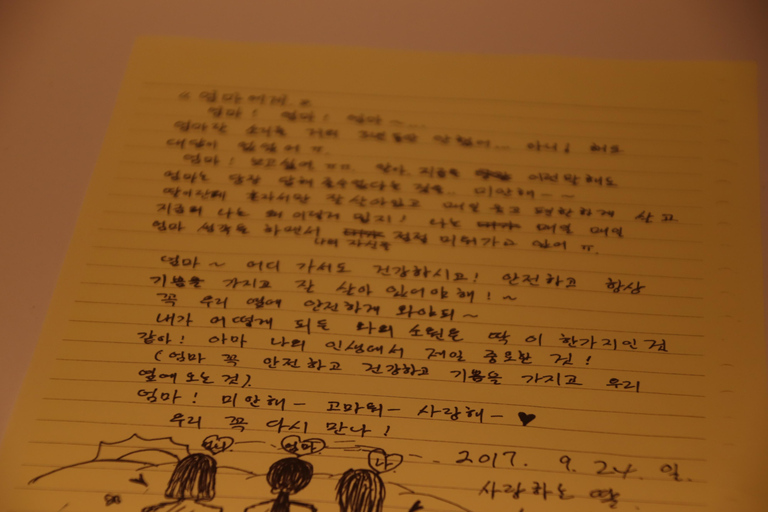 < 엄마에게 >
엄마! 엄마! 엄마~...
엄마란 소리를 거의 안 했어... 아니! 해도
대답이 없었어 ㅠ.
엄마! 보고싶어 ㅠㅠ. 엄마, 지금 이런말해도
엄마는 당장 답해 줄수없다는 것을.. 미안해~~
딸이란애 혼자서만 잘 살아있고 매일 웃고 편안하게 살고
지금의 나는 왜 이렇게 밉지! 나는 매일 매일
엄마 생각을 하면서 나의 자신을 점점 미워가고 있어 ㅠ.
엄마~ 어디 가서도 건강하시고! 안전하고 항상
기쁨을 가지고 잘 살아 있어야 해!~
꼭 우리 옆에 안전하게 와야 되~
내가 어떻게 되든 나의 소원은 딱 이 한가지인 것
같아! 아마 나의 인생에서 제일 중요한 것!
(엄마 꼭 안전하고 건강하고 기쁨을 가지고 우리
옆에 오는 것).
엄마! 미안해~ 고마워~ 사랑해~ ♥
우리 꼭 다시 만나!
언니 엄마 나
2017. 9. 24. 일.
사랑하는 딸